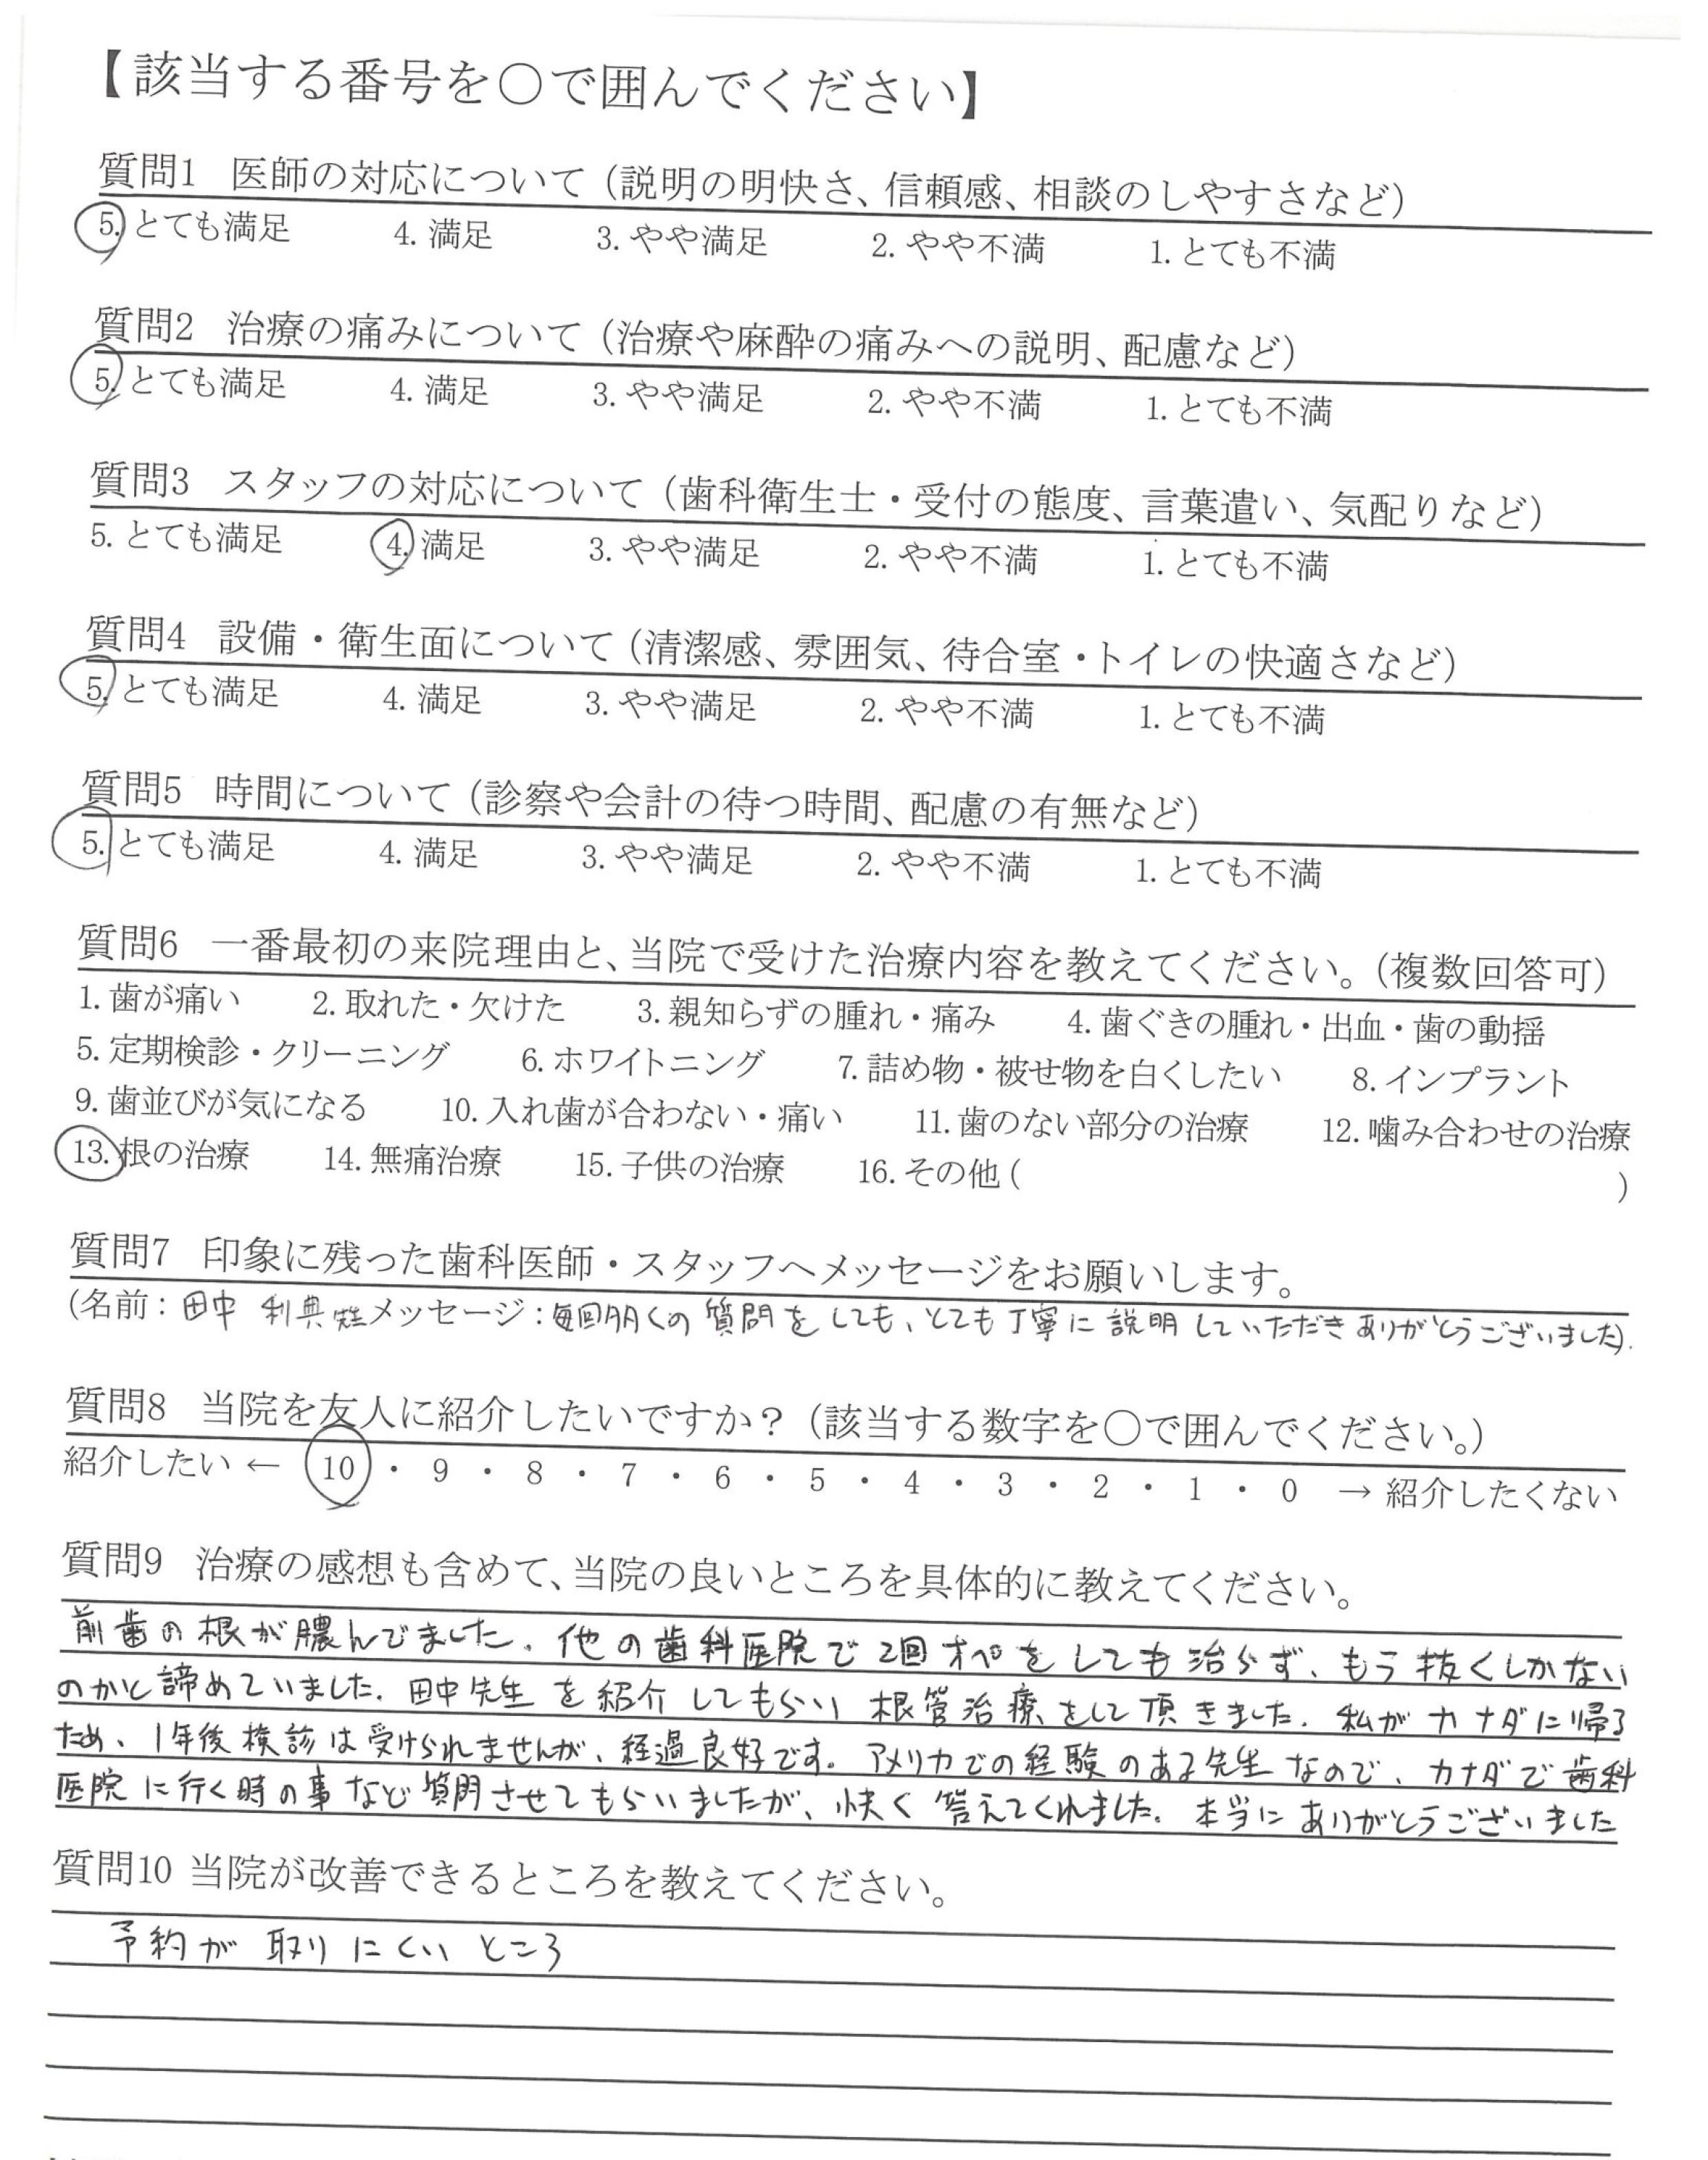 【該当する番号を○で囲んでください】
質問1 医師の対応について（説明の明快さ、信頼感、相談のしやすさなど）
5. とても満足 4. 満足 3. やや満足 2. やや不満 1. とても不満
質問2 治療の痛みについて（治療や麻酔の痛みへの説明、配慮など）
5. とても満足 4. 満足 3. やや満足 2. やや不満 1. とても不満
質問3 スタッフの対応について（歯科衛生士・受付の態度、言葉遣い、気配りなど）
5. とても満足 4. 満足 3. やや満足 2. やや不満 1. とても不満
質問4 設備・衛生面について（清潔感、雰囲気、待合室・トイレの快適さなど）
5. とても満足 4. 満足 3. やや満足 2. やや不満 1. とても不満
質問5 時間について（診察や会計の待つ時間、配慮の有無など）
5. とても満足 4. 満足 3. やや満足 2. やや不満 1. とても不満
質問6 一番最初の来院理由と、当院で受けた治療内容を教えてください。（複数回答可）
1. 歯が痛い 2. 取れた・欠けた 3. 親知らずの腫れ・痛み 4. 歯ぐきの腫れ・出血・歯の動揺
5. 定期検診・クリーニング 6. ホワイトニング 7. 詰め物・被せ物を白くしたい 8. インプラント
9. 歯並びが気になる 10. 入れ歯が合わない・痛い 11. 歯のない部分の治療 12. 噛み合わせの治療
13. 根の治療 14. 無痛治療 15. 子供の治療 16. その他（ ）
質問7 印象に残った歯科医師・スタッフへメッセージをお願いします。
（名前：田中 利典先生 メッセージ：毎回多くの質問をしても、とても丁寧に説明していただきありがとうございました）.
質問8 当院を友人に紹介したいですか？（該当する数字を○で囲んでください。）
紹介したい ← 10 ・ 9 ・ 8 ・ 7 ・ 6 ・ 5 ・ 4 ・ 3 ・ 2 ・ 1 ・ 0 → 紹介したくない
質問9 治療の感想も含めて、当院の良いところを具体的に教えてください。
前歯の根が膿んでました. 他の歯科医院で2回オペをしても治らず、もう抜くしかない
のかと諦めていました. 田中先生を紹介してもらい根管治療をして頂きました. 私がカナダに帰る
ため、1年後検診は受けられませんが、経過良好です。アメリカでの経験のある先生なので、カナダで歯科
医院に行く時の事など質問させてもらいましたが、快く答えてくれました. 本当にありがとうございました
質問10 当院が改善できるところを教えてください。
予約が取りにくいところ